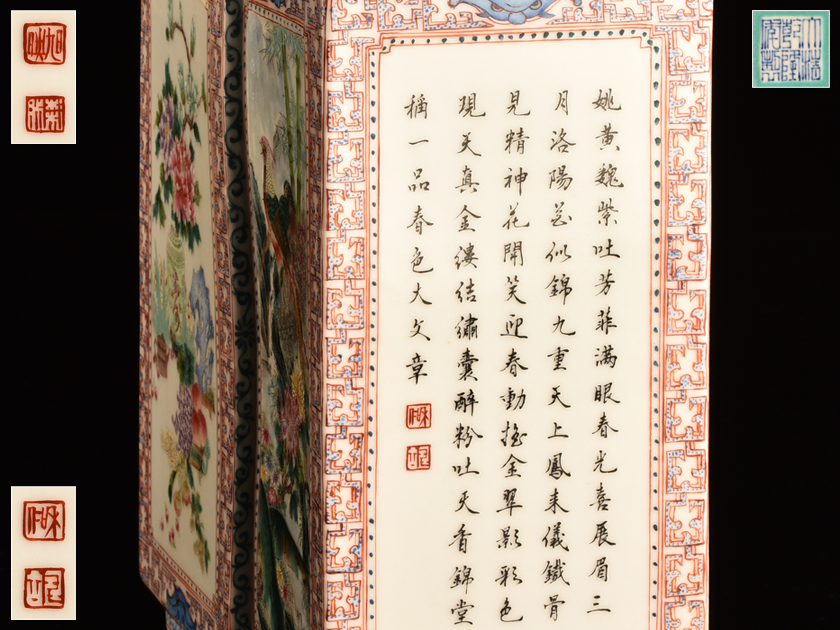 姚黃魏紫吐芳菲滿眼春光喜展眉三
月洛陽花似錦九重天上鳳来儀鐵骨
見精神花開笑迎春動搖金翠影彩色
現美真金縷結繡囊醉粉吐天香錦堂
稱一品春色大文章
大清
乾隆